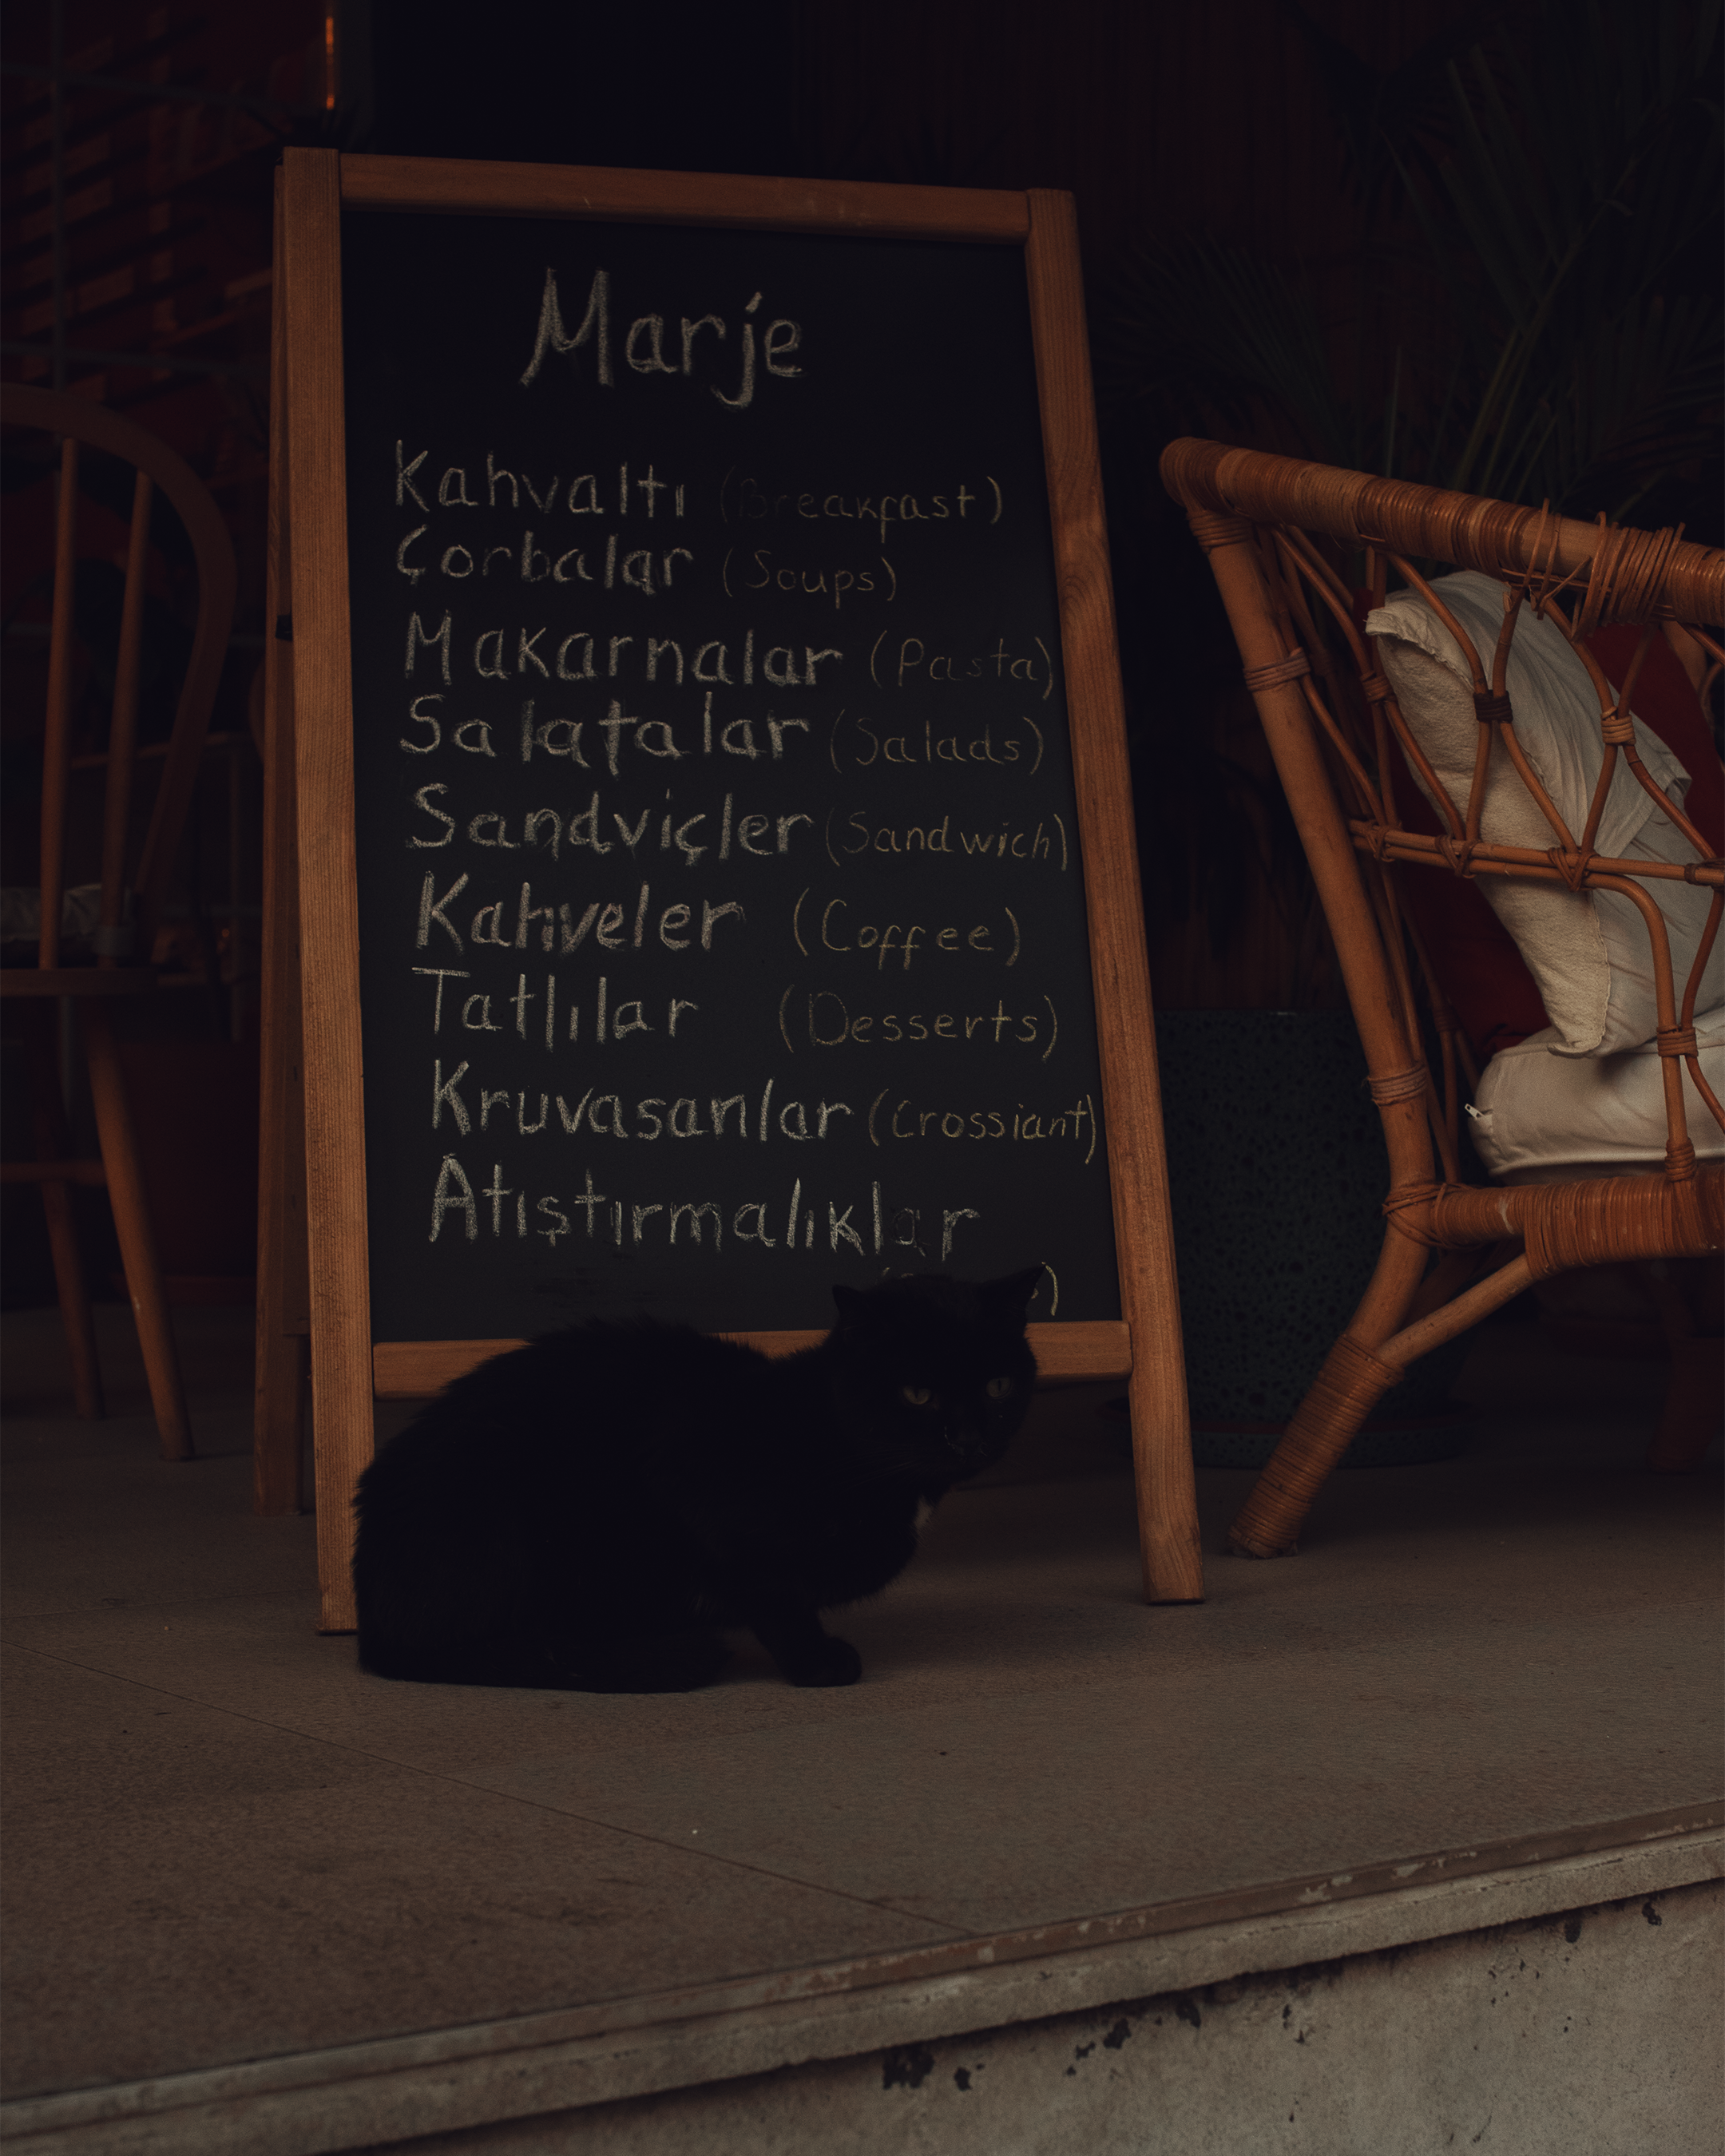 Marje
Kahvaltı (Breakfast)
Çorbalar (Soups)
Makarnalar (Pasta)
Salatalar (Salads)
Sandviçler (Sandwich)
Kahveler (Coffee)
Tatlılar (Desserts)
Kruvasanlar (Crossiant)
Atıştırmalıklar